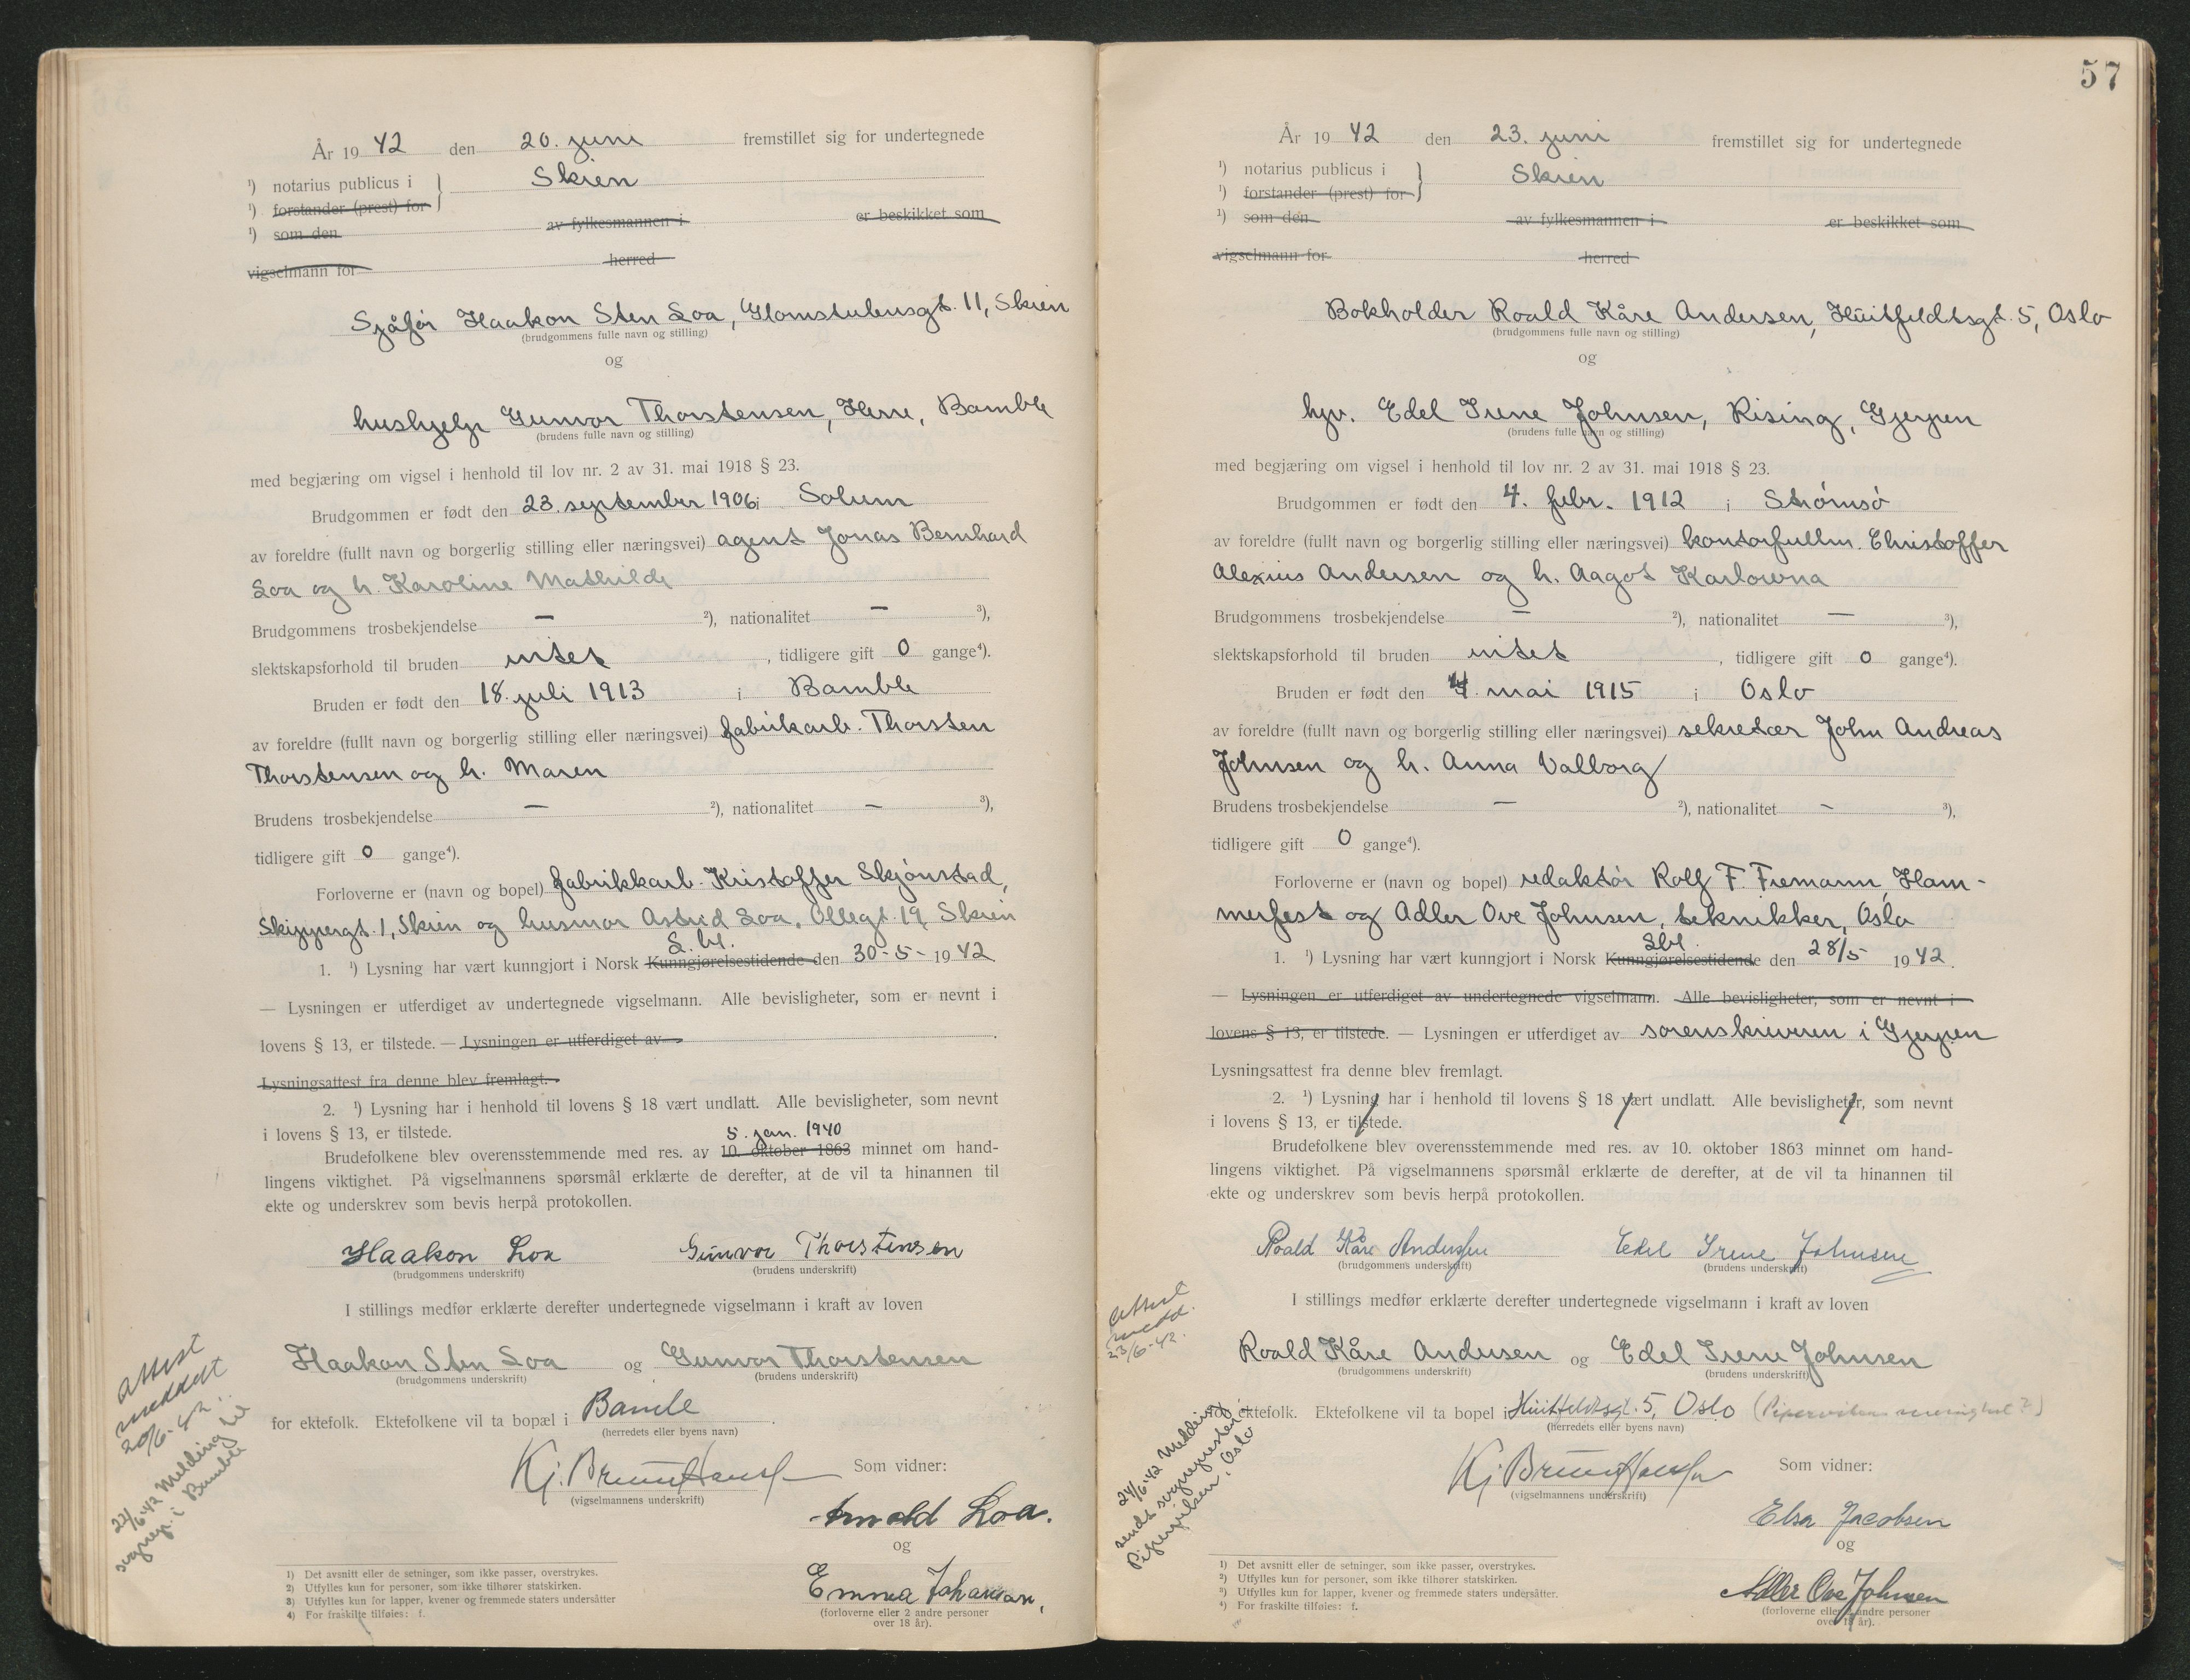 År 19 42 den 20. juni fremstillet sig for undertegnede
¹) notarius publicus i } Skien
¹) forstander (prest) for
¹) som den av fylkesmannen i er beskikket som
vigselmann for herred
Sjåfør Haakon Sten Loa, Glomstulensgt. 11, Skien
(brudgommens fulle navn og stilling)
og
hushjelp Gunvor Thorstensen, Herre, Bamble
(brudens fulle navn og stilling)
med begjæring om vigsel i henhold til lov nr. 2 av 31. mai 1918 § 23.
Brudgommen er født den 23. september 1906 i Solum
av foreldre (fullt navn og borgerlig stilling eller næringsvei) agent Jonas Bernhard
Loa og h. Karoline Mathilde
Brudgommens trosbekjendelse — ²), nationalitet — ³),
slektskapsforhold til bruden intet, tidligere gift 0 gange⁴).
Bruden er født den 18. juli 1913 i Bamble
av foreldre (fullt navn og borgerlig stilling eller næringsvei) fabrikarb. Thorsten
Thorstensen og h. Maren
Brudens trosbekjendelse — ²), nationalitet — ³),
tidligere gift 0 gange⁴).
Forloverne er (navn og bopel) fabrikkarb. Kristoffer Skjønstad,
Skippergt. 1, Skien og husmor Astrid Loa, Ollegt. 19, Skien
S. bl.
1. ¹) Lysning har vært kunngjort i Norsk Kunngjørelsestidende den 30-5- 19 42.
— Lysningen er utferdiget av undertegnede vigselmann. Alle bevisligheter, som er nevnt i
lovens § 13, er tilstede. — Lysningen er utferdiget av .
Lysningsattest fra denne blev fremlagt.
2. ¹) Lysning har i henhold til lovens § 18 vært undlatt. Alle bevisligheter, som nevnt
i lovens § 13, er tilstede.
5. jan. 1940
Brudefolkene blev overensstemmende med res. av 10. oktober 1863 minnet om hand-
lingens viktighet. På vigselmannens spørsmål erklærte de derefter, at de vil ta hinannen til
ekte og underskrev som bevis herpå protokollen.
Haakon Loa Gunvor Thorstensen
(brudgommens underskrift) (brudens underskrift)
I stillings medfør erklærte derefter undertegnede vigselmann i kraft av loven
Haakon Sten Loa og Gunvor Thorstensen
(brudgommens underskrift) (brudens underskrift)
for ektefolk. Ektefolkene vil ta bopæl i Bamle.
(herredets eller byens navn)
Kj. Bruun Hansen Som vidner:
(vigselmannens underskrift)
Arnold Loa.
og
Emma Johansen,
(forloverne eller 2 andre personer
over 18 år).
attest
meddelt
20/6-42.
22/6-42 Melding til
sognepr. i Bamble
1) Det avsnitt eller de setninger, som ikke passer, overstrykes.
2) Utfylles kun for personer, som ikke tilhører statskirken.
3) Utfylles kun for lapper, kvener og fremmede staters undersåtter
4) For fraskilte tilføies: f.
57
År 19 42 den 23. juni fremstillet sig for undertegnede
¹) notarius publicus i } Skien
¹) forstander (prest) for
¹) som den av fylkesmannen i er beskikket som
vigselmann for herred
Bokholder Roald Kåre Andersen, Huitfeldtsgt. 5, Oslo
(brudgommens fulle navn og stilling)
og
hpr. Edel Irene Johnsen, Rising, Gjerpen
(brudens fulle navn og stilling)
med begjæring om vigsel i henhold til lov nr. 2 av 31. mai 1918 § 23.
Brudgommen er født den 4. febr. 1912 i Strømsø
av foreldre (fullt navn og borgerlig stilling eller næringsvei) kontorfullm. Christoffer
Alexius Andersen og h. Aagot Karlowna
Brudgommens trosbekjendelse — ²), nationalitet — ³),
slektskapsforhold til bruden intet, tidligere gift 0 gange⁴).
Bruden er født den 4. mai 1915 i Oslo
av foreldre (fullt navn og borgerlig stilling eller næringsvei) sekretær John Andreas
Johnsen og h. Anna Valborg
Brudens trosbekjendelse — ²), nationalitet — ³),
tidligere gift 0 gange⁴).
Forloverne er (navn og bopel) redaktør Rolf F. Fremann, Ham-
merfest og Adler Ove Johnsen, teknikker, Oslo
Sbl.
1. ¹) Lysning har vært kunngjort i Norsk Kunngjørelsestidende den 28/5 19 42.
— Lysningen er utferdiget av undertegnede vigselmann. Alle bevisligheter, som er nevnt i
lovens § 13, er tilstede. — Lysningen er utferdiget av sorenskriveren i Gjerpen
Lysningsattest fra denne blev fremlagt.
2. ¹) Lysning har i henhold til lovens § 18 vært undlatt. Alle bevisligheter, som nevnt
i lovens § 13, er tilstede.
Brudefolkene blev overensstemmende med res. av 10. oktober 1863 minnet om hand-
lingens viktighet. På vigselmannens spørsmål erklærte de derefter, at de vil ta hinannen til
ekte og underskrev som bevis herpå protokollen.
Roald Kåre Andersen Edel Irene Johnsen
(brudgommens underskrift) (brudens underskrift)
I stillings medfør erklærte derefter undertegnede vigselmann i kraft av loven
Roald Kåre Andersen og Edel Irene Johnsen
(brudgommens underskrift) (brudens underskrift)
for ektefolk. Ektefolkene vil ta bopel i Huitfeldtsgt. 5, Oslo (Pipervikens menighet?)
(herredets eller byens navn)
Kj Bruun Hansen Som vidner:
(vigselmannens underskrift)
Elsa Jacobsen
og
Adler Ove Johnsen
(forloverne eller 2 andre personer
over 18 år).
attest
medd.
23/6-42.
24/6-42 Melding
sendt sognepresten i
Piperviken, Oslo
1) Det avsnitt eller de setninger, som ikke passer, overstrykes.
2) Utfylles kun for personer, som ikke tilhører statskirken.
3) Utfylles kun for lapper, kvener og fremmede staters undersåtter.
4) For fraskilte tilføies: f.